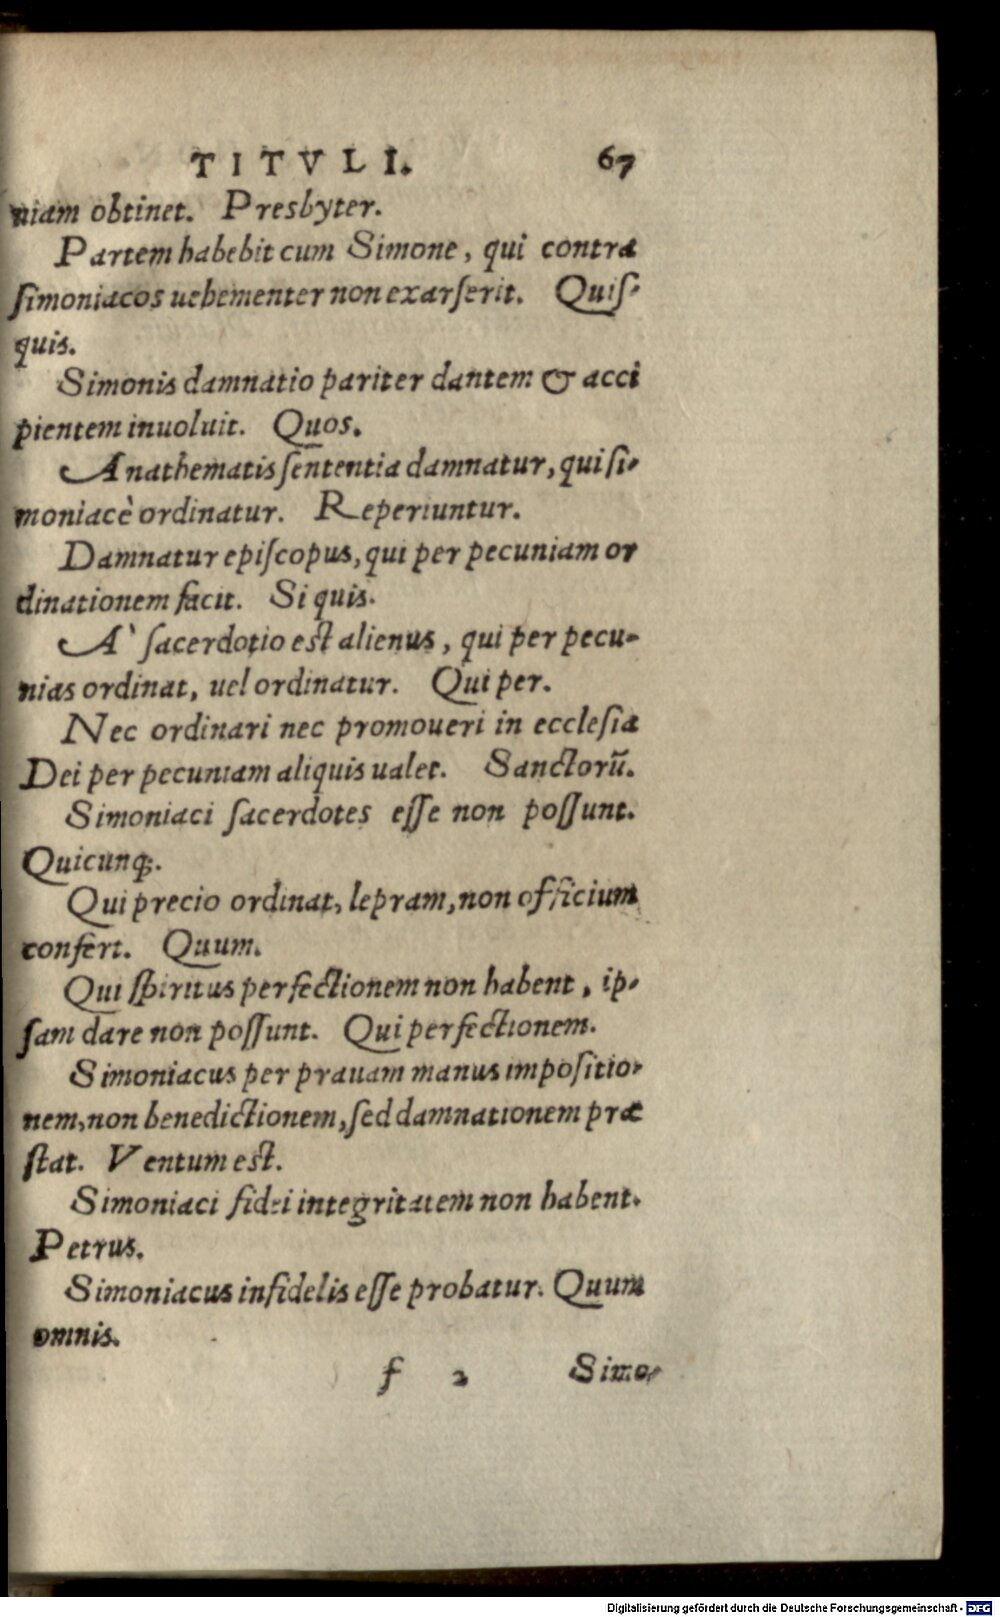 TITVLI. 67
niam obtinet. Presbyter.
Partem habebit cum Simone, qui contra
ſimoniacos uehementer non exarſerit. Quiſ-
quis.
Simonis damnatio pariter dantem & acci
pientem inuoluit. Quos.
Anathematis ſententia damnatur, qui ſi-
moniacè ordinatur. Reperiuntur.
Damnatur epiſcopus, qui per pecuniam or
dinationem facit. Si quis.
A' ſacerdotio eſt alienus, qui per pecu-
nias ordinat, uel ordinatur. Qui per.
Nec ordinari nec promoueri in eccleſia
Dei per pecuniam aliquis ualet. Sanctorũ.
Simoniaci ſacerdotes eſſe non poſſunt.
Quicunq;.
Qui precio ordinat, lepram, non officium
confert. Quum.
Qui ſpiritus perfectionem non habent, ip-
ſam dare non poſſunt. Qui perfectionem.
Simoniacus per prauam manus impoſitio-
nem, non benedictionem, ſed damnationem præ
ſtat. Ventum eſt.
Simoniaci fidei integritatem non habent.
Petrus.
Simoniacus infidelis eſſe probatur. Quum
omnis.
f 2 Simo-
Digitalisierung gefördert durch die Deutsche Forschungsgemeinschaft - DFG